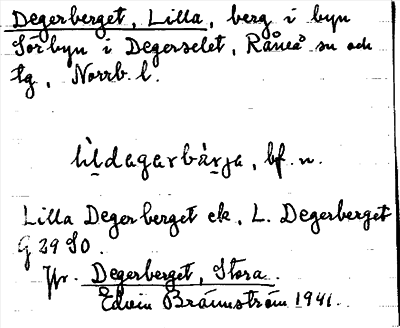 Degerberget, Lilla, berg i byn
Sörbyn i Degerselet, Råneå sn och
tg, Norrb. l.
lìldagarbàrja, bf. n.
Lilla Degerberget ek, L. Degerberget
G 39 SO.
Jfr. Degerberget, Stora.
Edvin Brännström 1941.